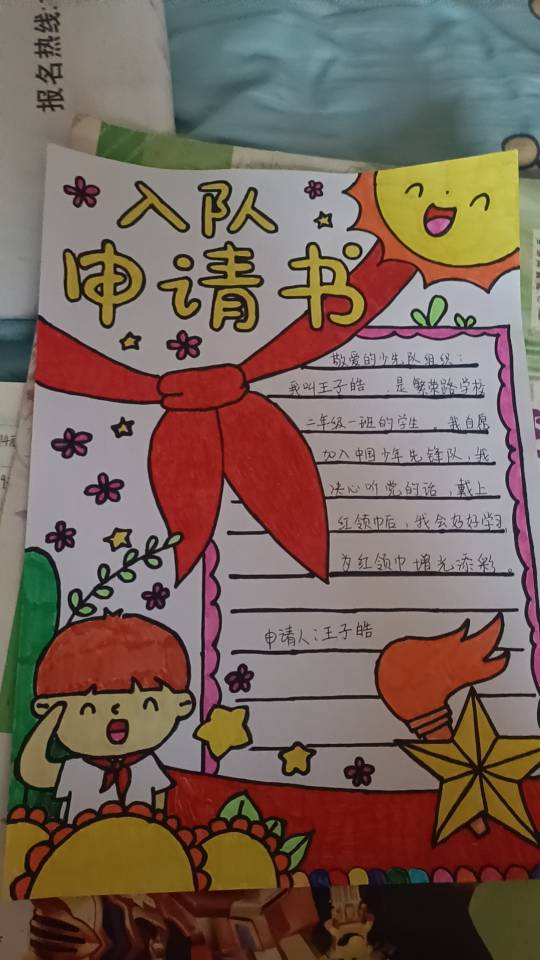 报名热线:
入队
申请书
敬爱的少先队组织：
我叫王子皓，是繁荣路学校
二年级一班的学生。我自愿
加入中国少年先锋队，我
决心听党的话，戴上
红领巾后，我会好好学习
为红领巾增光添彩。
申请人：王子皓